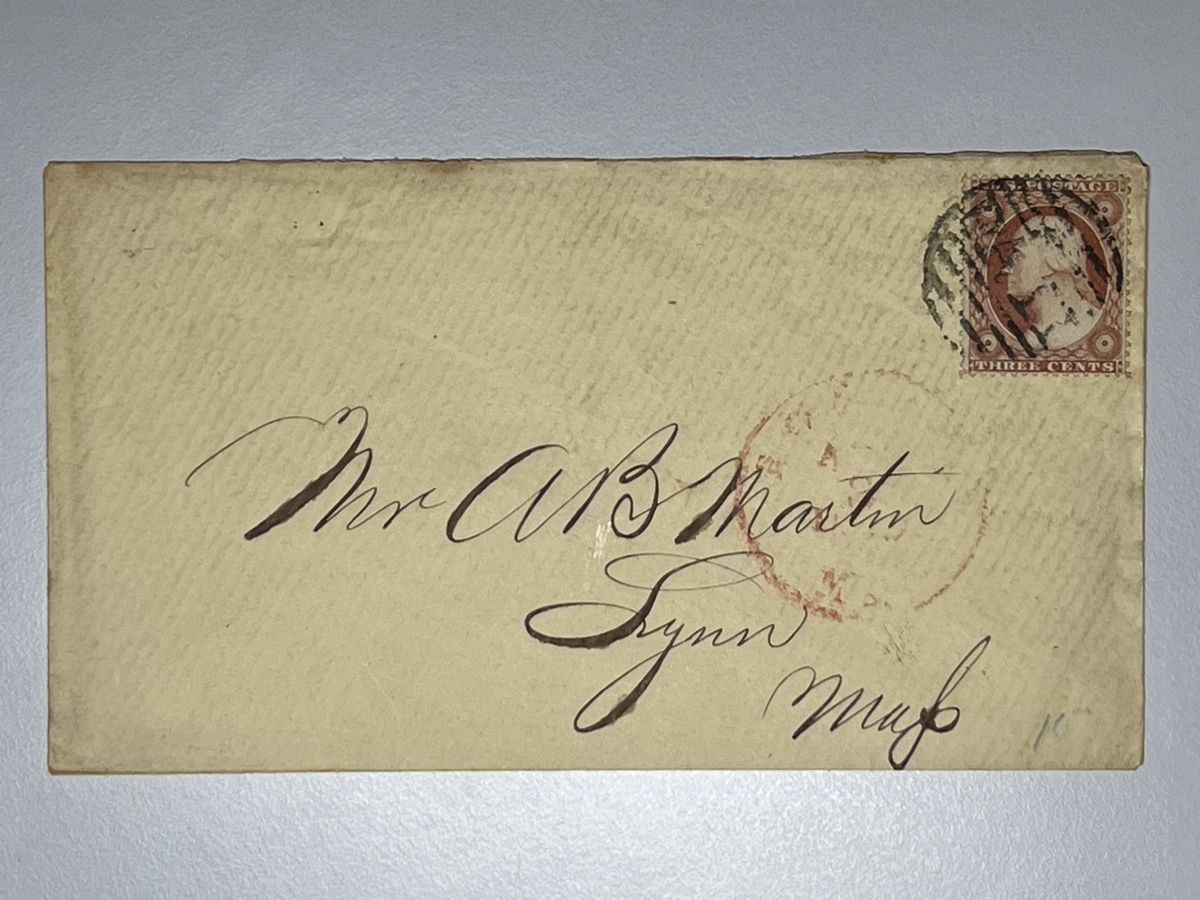 U.S. POSTAGE
THREE CENTS
Mr A B Martin
Lynn
Mass